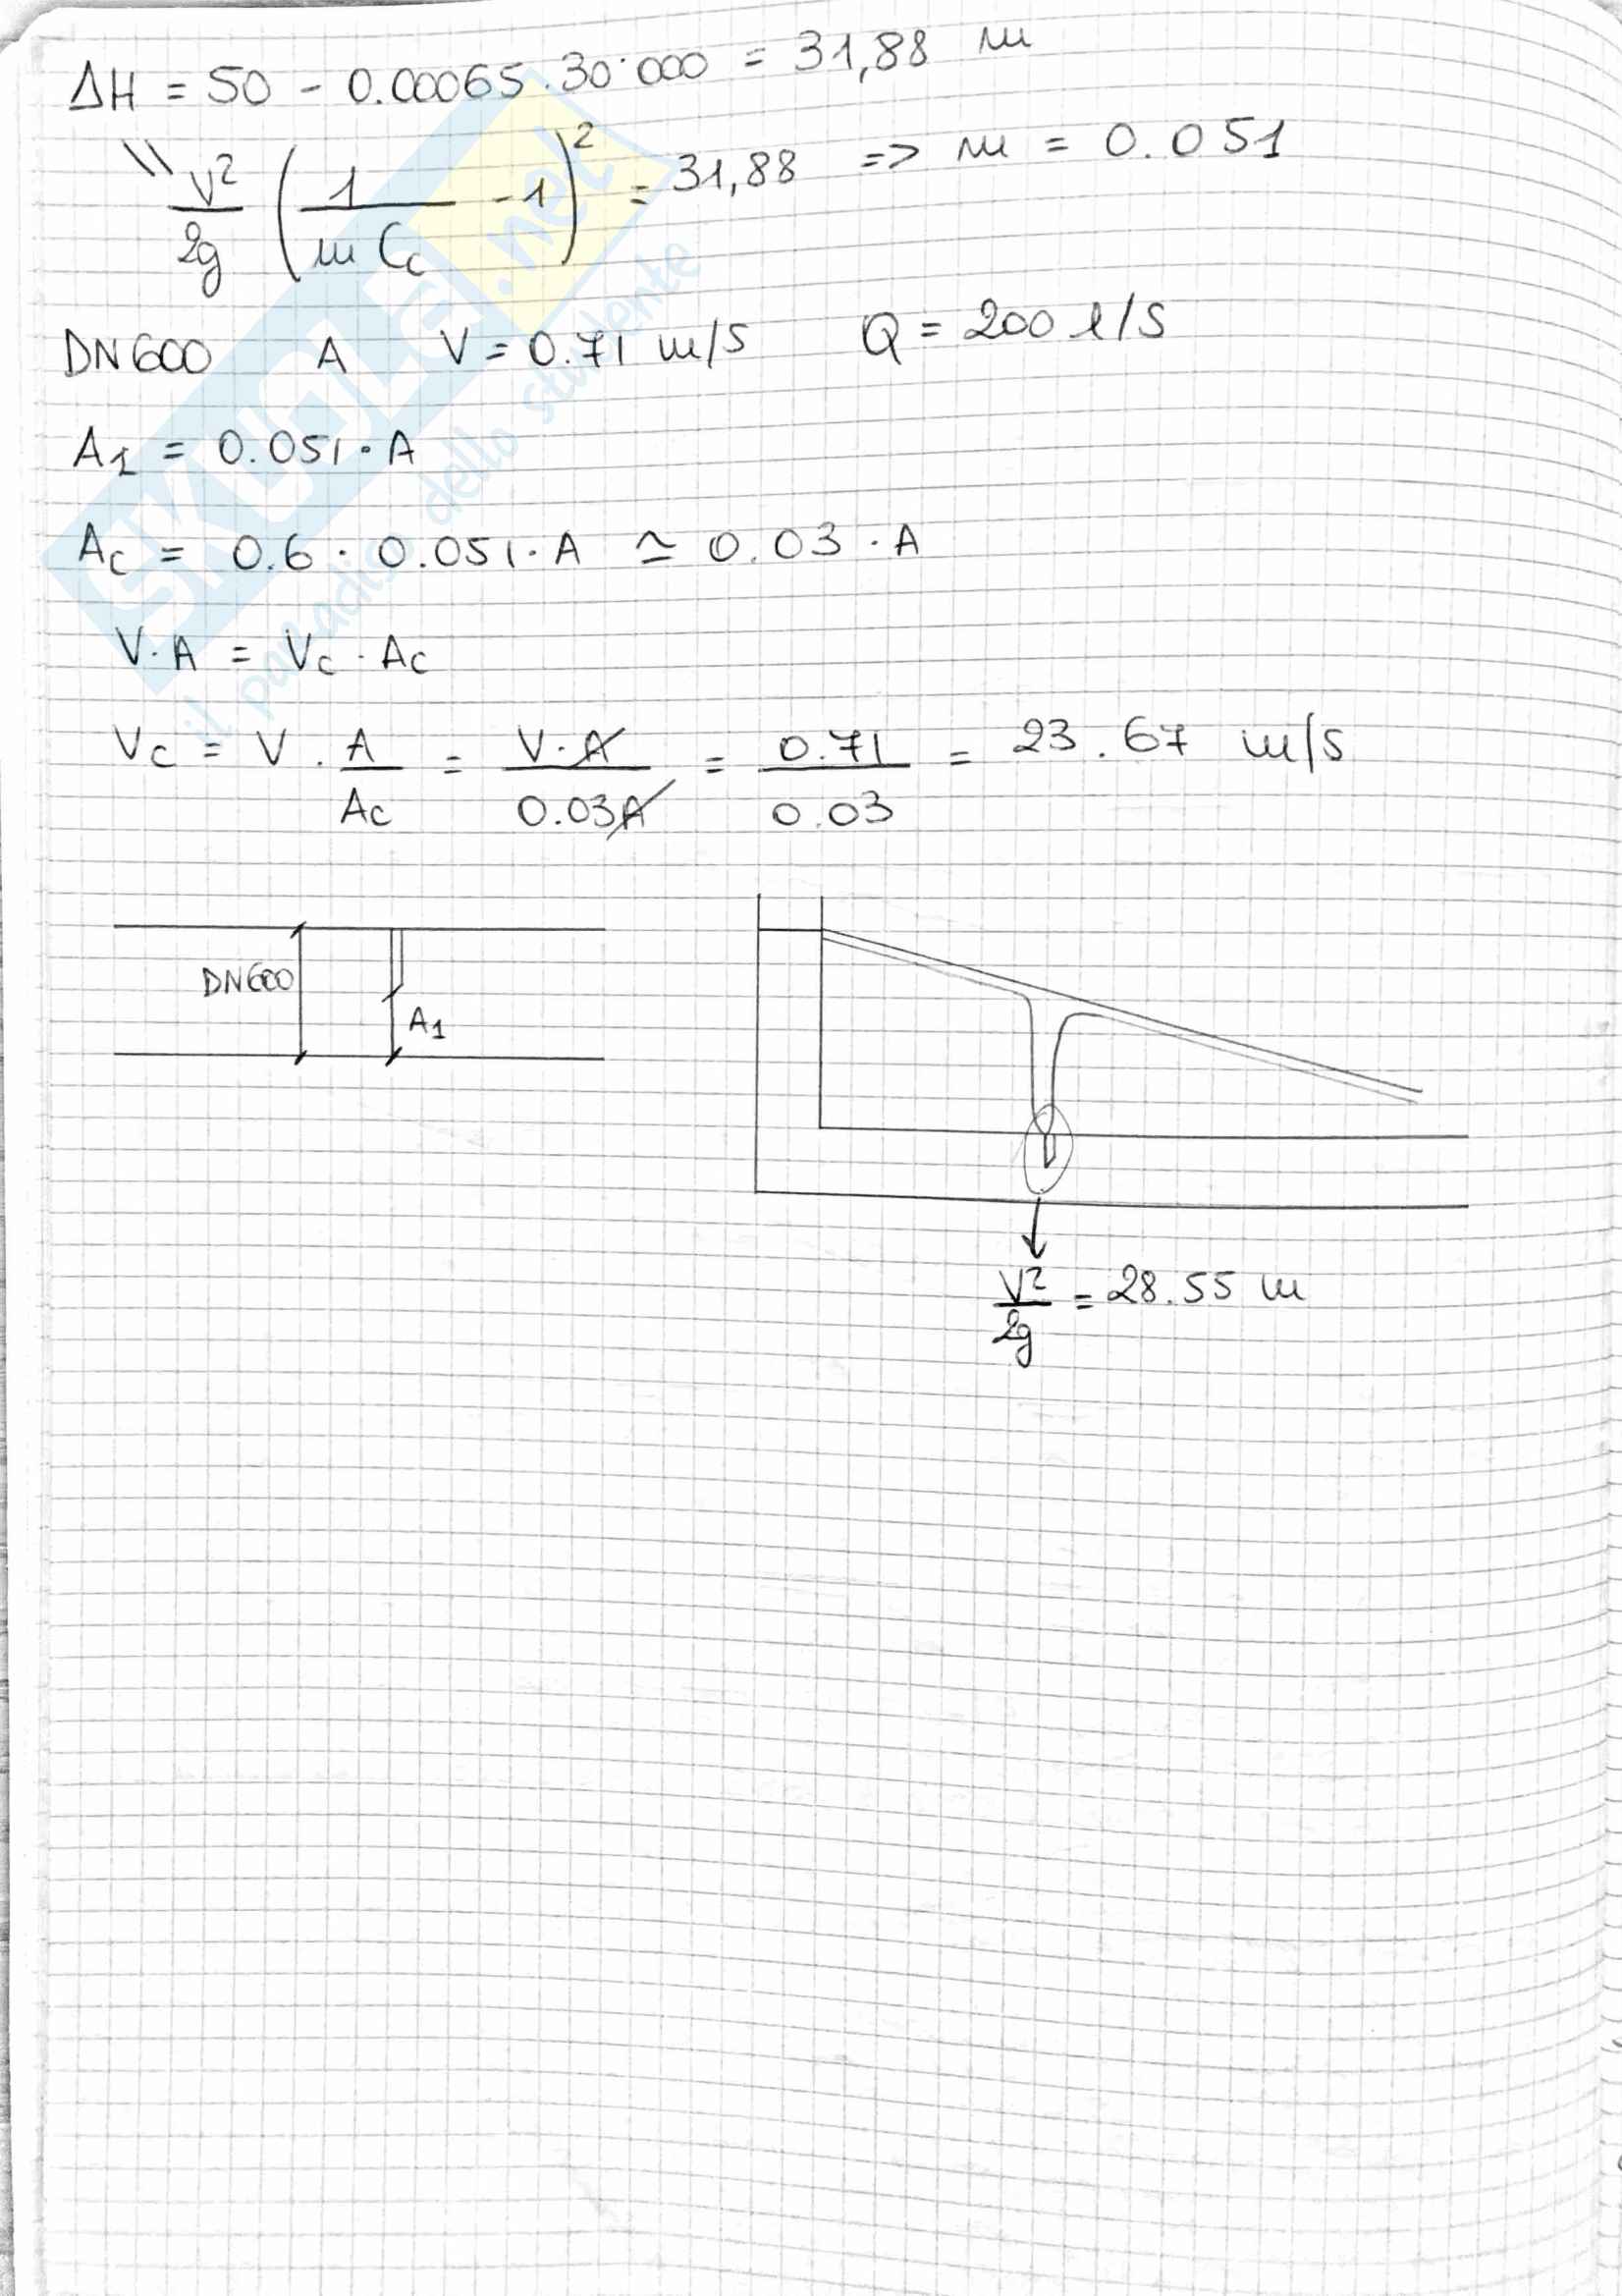 ΔH = 50 - 0.00065 · 30'000 = 31,88 m
\\ V²/2g (1/(m Cc) - 1)² = 31,88 => m = 0.051
DN600 A V = 0.71 m/s Q = 200 l/s
A1 = 0.051 · A
Ac = 0.6 · 0.051 · A ≃ 0.03 · A
V · A = Vc · Ac
Vc = V · A/Ac = V·A/0.03A = 0.71/0.03 = 23.67 m/s
DN600
A1
V²/2g = 28.55 m
SKUOLA.net
il paradiso dello studente